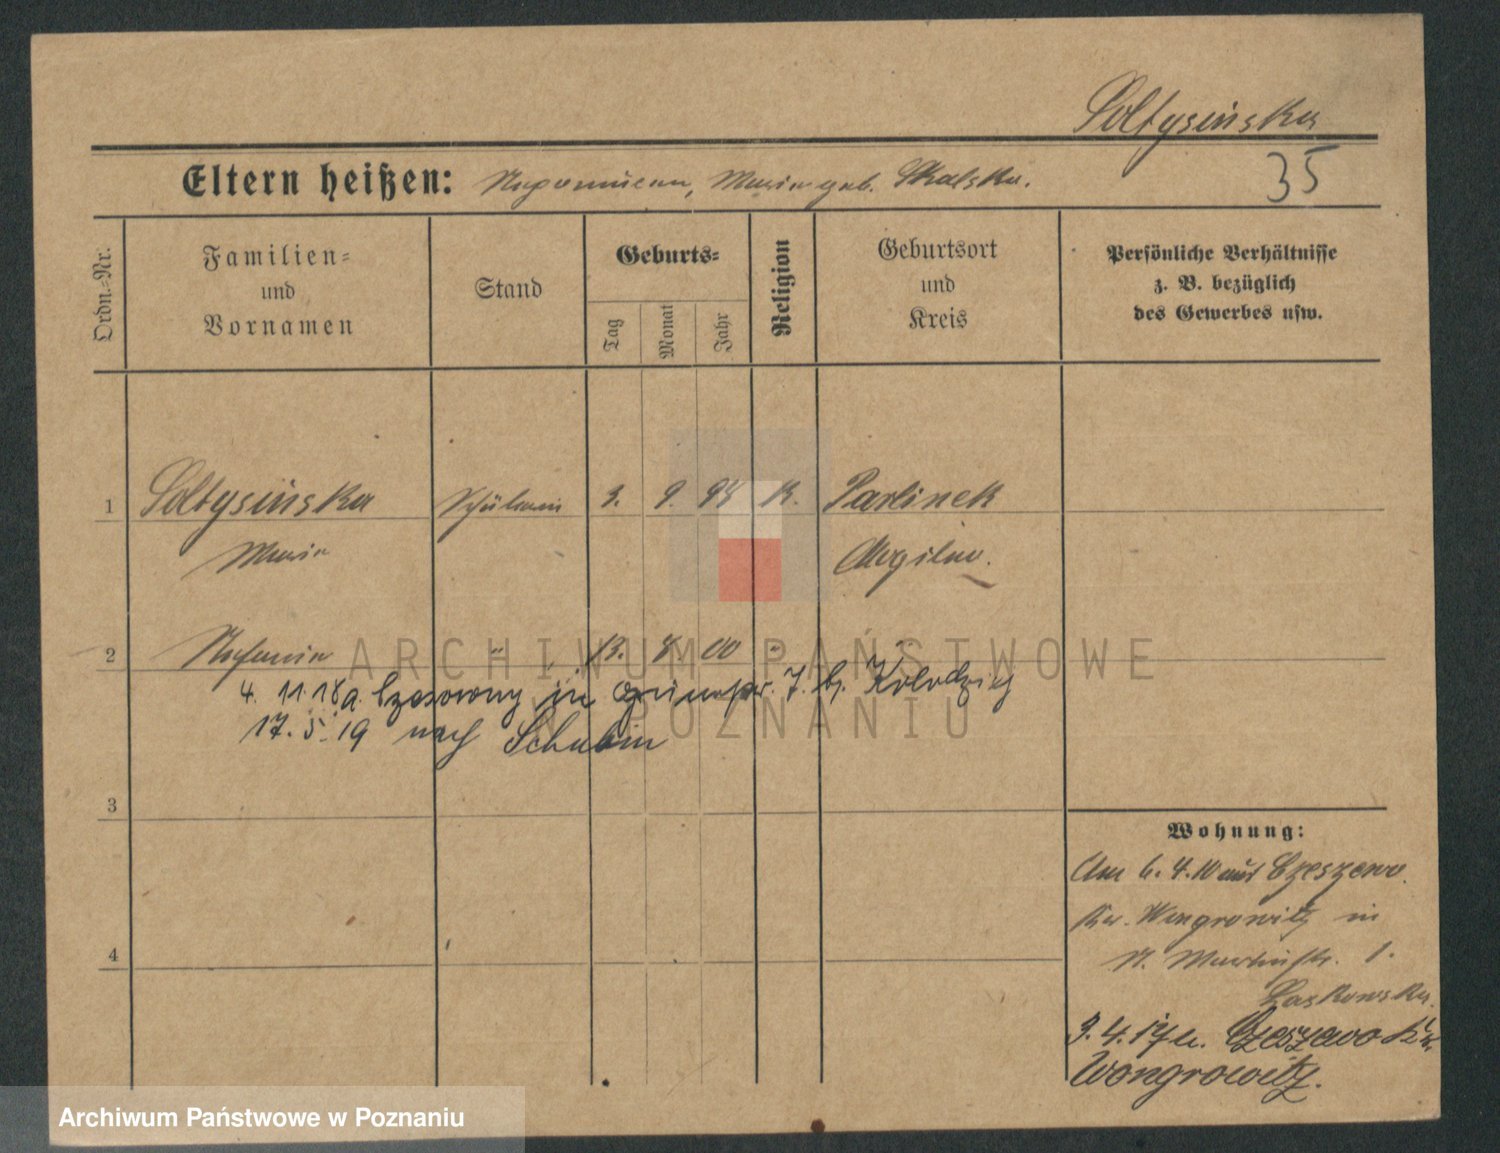 Soltysinska
Eltern heißen: Nepomucen, Maria geb. Skalska.
35
Ordn.-Nr.
Familien-
und
Vornamen
Stand
Geburts-
Tag
Monat
Jahr
Religion
Geburtsort
und
Kreis
Persönliche Verhältnisse
z. B. bezüglich
des Gewerbes usw.
1 Soltysinska Schülerin 3. 9. 98 K. Parlinek
Maria
2 Stefania " 13. 8. 00 "
4. 11. 18 a. in b. Kolodziej
17. 5. 19 nach Schubin
3
4
Wohnung:
Am 6. 4. 10 aus Czeszewo.
Kr. Wongrowitz in
St. Martinstr. 1.
Laskowska.
3. 4. 17 n. Czeszewo Kr.
Wongrowitz.
ARCHIWUM PAŃSTWOWE
W POZNANIU
Archiwum Państwowe w Poznaniu